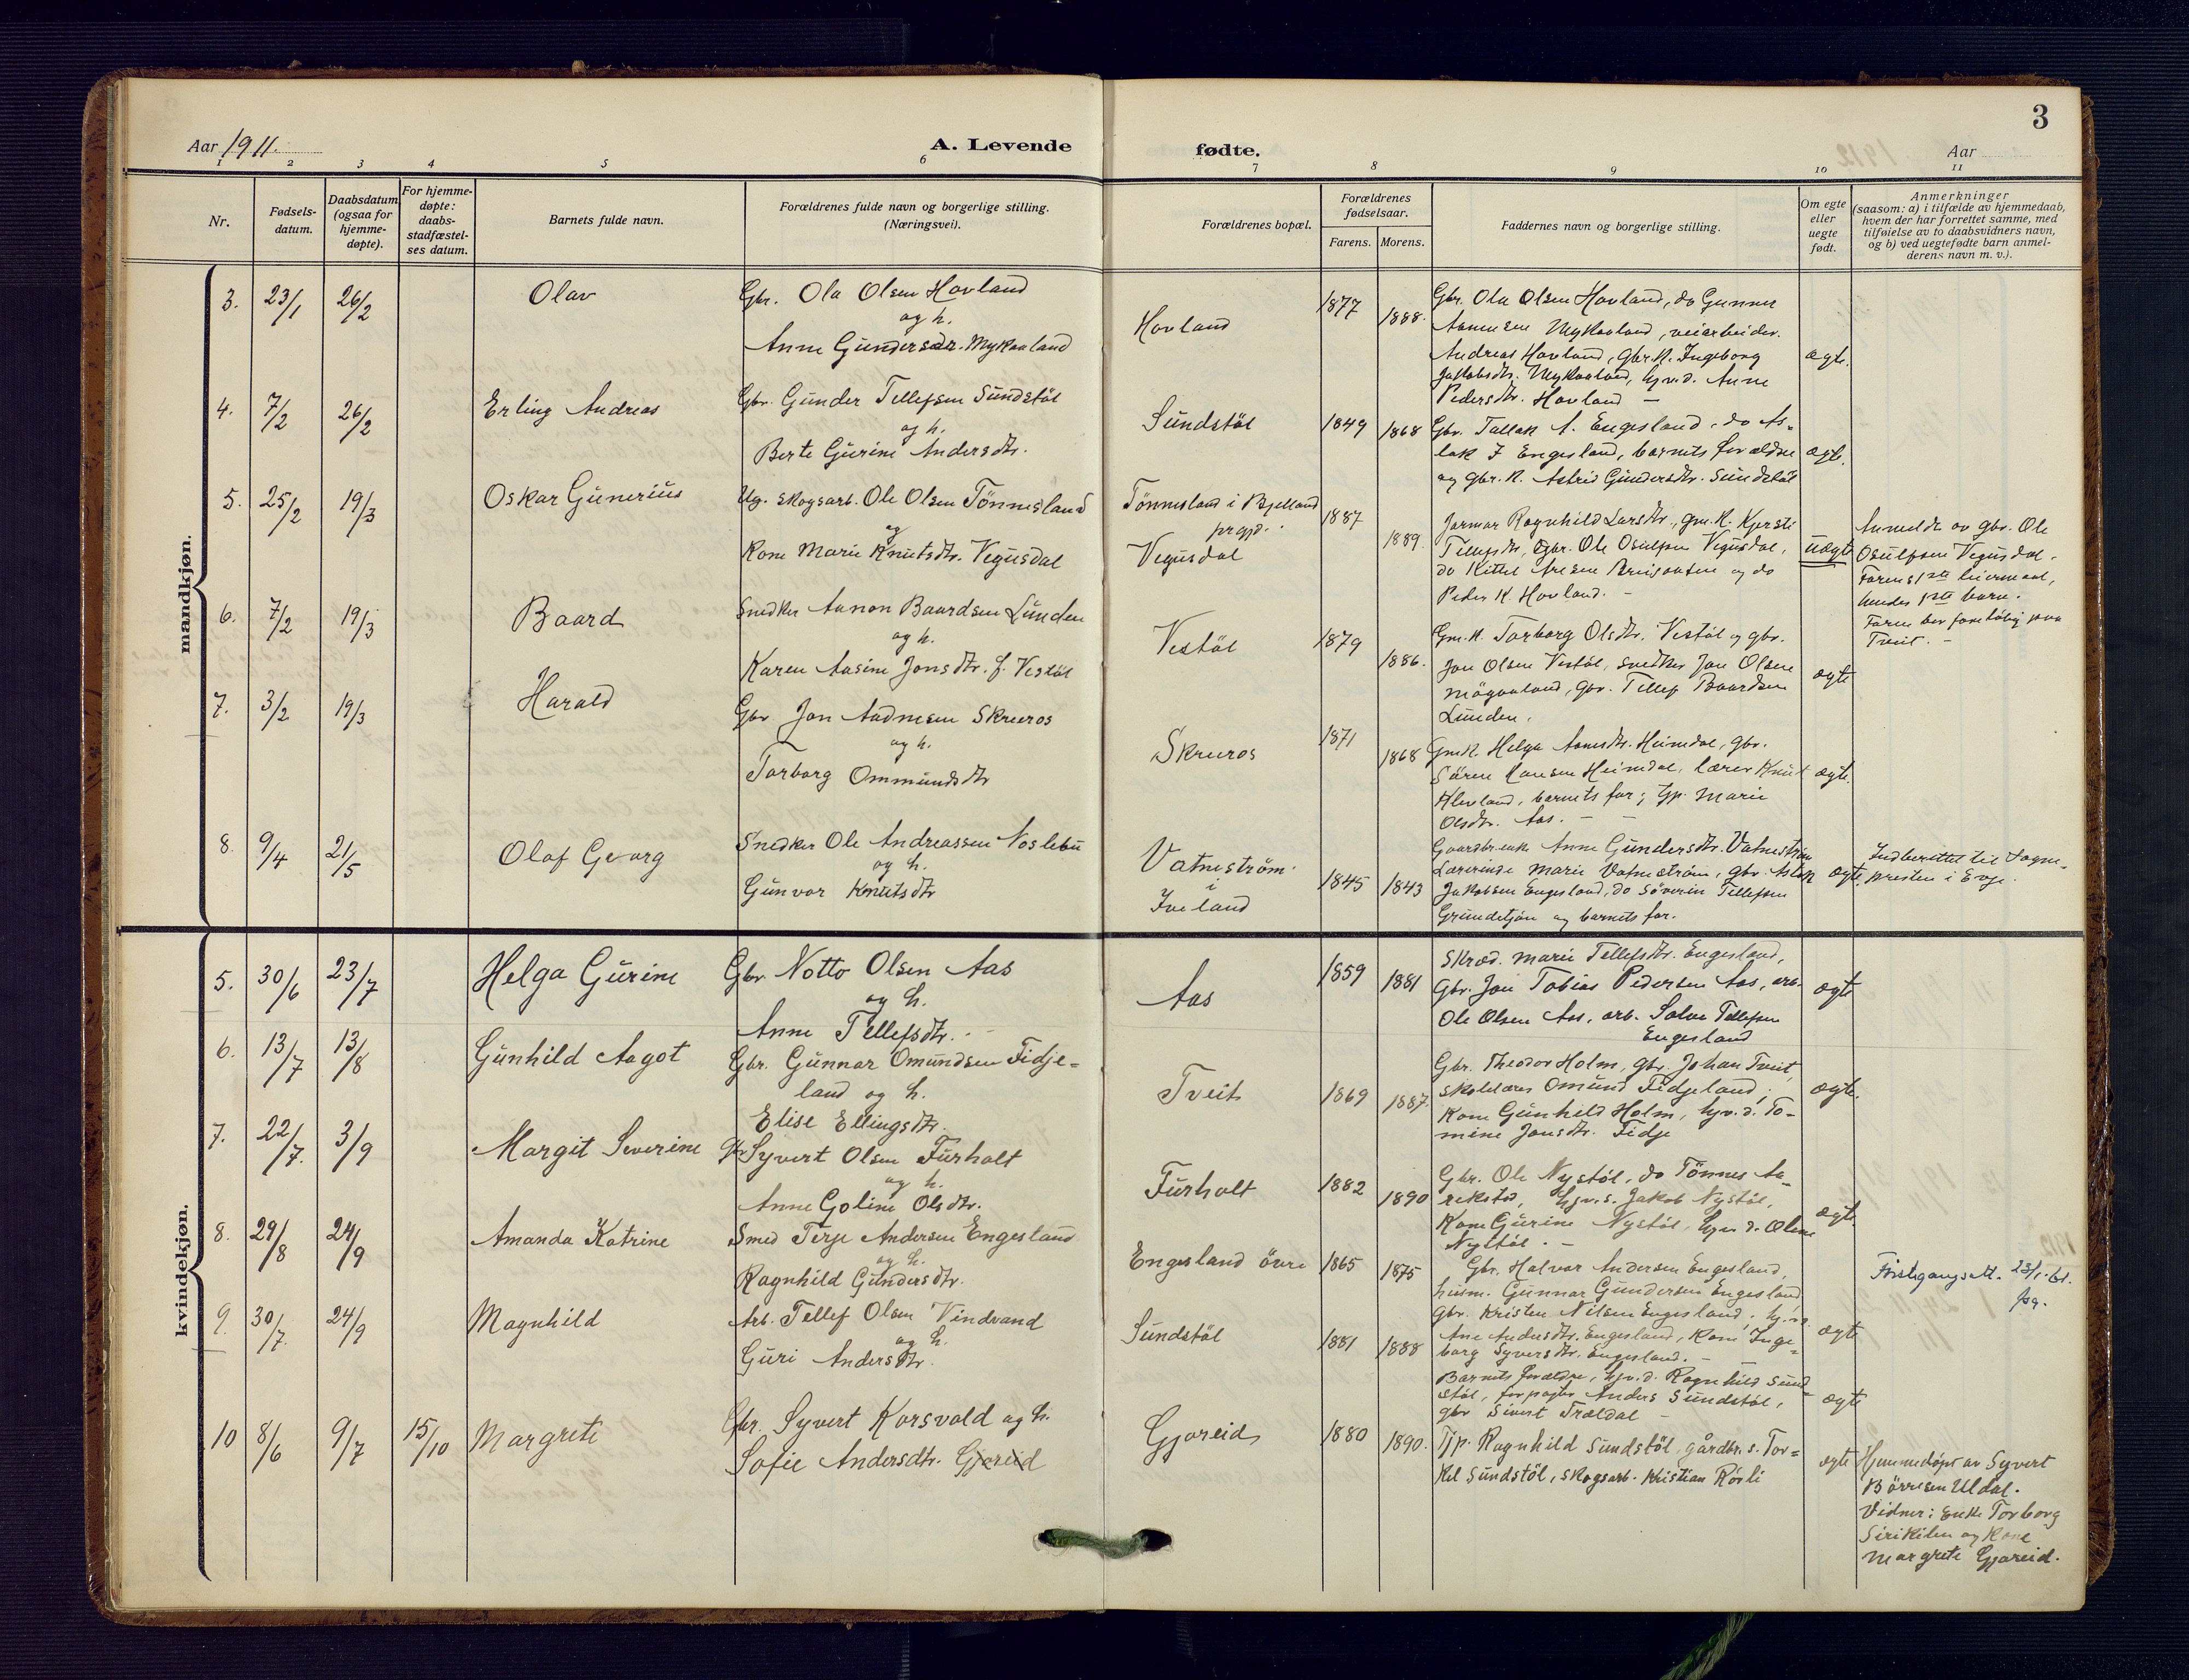 3
Aar 1911.
A. Levende fødte.
Aar
1 2 3 4 5 6 7 8 9 10 11
Nr.
Fødsels-
datum.
Daabsdatum
(ogsaa for
hjemme-
døpte).
For hjemme-
døpte:
daabs-
stadfæstel-
ses datum.
Barnets fulde navn.
Forældrenes fulde navn og borgerlige stilling.
(Næringsvei).
Forældrenes bopæl.
Forældrenes
fødselsaar.
Farens. Morens.
Faddernes navn og borgerlige stilling.
Om egte
eller
uegte
født.
Anmerkninger
(saasom: a) i tilfælde av hjemmedaab,
hvem der har forrettet samme, med
tilføielse av to daabsvidners navn,
og b) ved uegtefødte barn anmel-
derens navn m. v.).
mandkjøn.
3. 23/1 26/2 Olav
Gbr. Ola Olsen Hovland
og h.
Anne Gundersdr. Mykaaland
Hovland
1877 1888.
Gbr. Ola Olsen Hovland, do Gunner
Aanensen Mykaaland, veiarbeider
Andreas Hovland, Gbr.K. Ingeborg
Jakobsdtr. Mykaaland, hjv.d. Anne
Pedersdtr. Hovland —
ægte.
4. 7/2 26/2 Erling Andreas
Gbr. Gunder Tellefsen Sundstöl
og h.
Berte Gurine Andersdtr.
Sundstöl
1849 1868
Gbr. Tallak A. Engesland, do As-
lak J Engesland, barnets forældre
og gbr. K. Astrid Gundersdtr. Sundstöl
ægte.
5. 25/2 19/3 Oskar Gunerius
Ug. skogsarb. Ole Olsen Tönnesland
og
Kone Marie Knutsdtr. Vegusdal
Tönnesland i Bjelland
prgjd.
Vegusdal
1887 1889.
Jormor Ragnhild Larsdtr., gm.K. Kjersti
Tellefsdtr, Gbr. Ole Osulfsen Vegusdal,
do Kittel
og do
Peder K. Hovland. —
uægte
Anmeldt av gbr. Ole
Osulfsen Vegusdal.
Farens 1ste leiermaal,
hendes 1ste barn.
Faren bor foreløbig paa
Tveit. —
6. 7/2 19/3 Baard
Snedker Aanon Baardsen Lunden
og h.
Karen Aasine Jonsdtr. f. Vestöl
Vestöl
1879 1886.
Gm.K. Torborg Olsdtr. Vestöl og gbr.
Jon Olsen Vestöl, snedker Jon Olsen
Mögaaland, gbr. Tellef Baardsen
Lunden.
ægte
7. 3/2 19/3 Harald
Gbr Jon Aadnesen Skreros
og h.
Torborg Ommundsdtr
Skreros
1871 1868
Gm.K. Helga Aanesdtr. Heimdal, gbr.
Sören Hansen Heimdal, lærer Knut
Klevland, barnets far; tjp. Marie
Olsdtr. Aas. — —
ægte.
8. 9/4 21/5 Olaf Georg
Snedker Ole Andreassen Noslebu
og h.
Gunvor Knutsdtr
Vatneström
i
Iveland
1845 1843
Gaardbr.enke Anne Gundersdtr. Vatneström
Lærerinde Marie Vatneström, gbr. Aslak
Jakobsen Engesland, do Söverin Tellefsen
Grundetjön og barnets far.
ægte.
Indberettet til Sogne-
presten i Evje.
kvindekjøn.
5. 30/6 23/7 Helga Gurine
Gbr. Notto Olsen Aas
og h.
Anne Tellefsdtr.
Aas
1859 1881
Skræd. Marie Tellefsdtr. Engesland,
Gbr. Jon Tobias Pedersen Aas, arb.
Ole Olsen Aas, arb. Salve Tellefsen
Engesland
ægte
6. 13/7 13/8 Gunhild Aagot
Gbr. Gunnar Omundsen Fidje-
land og h.
Elise Ellingsdtr.
Tveit
1869 1887.
Gbr. Theodor Holm, gbr. Johan Tveit,
skolelærer Omund Fidjeland,
Kone Gunhild Holm, hjv.d. To-
mine Jonsdtr. Fidje
ægte.
7. 22/7. 3/9 Margit Severine
Gbr Syvert Olsen Furholt
og h.
Anne Goline Olsdtr.
Furholt
1882 1890
Gbr. Ole Nystöl, do Tönnes Aa-
rekstad, hjv.s. Jakob Nystöl,
Kone Gurine Nystöl, hjv.d. Olene
Nystöl. —
ægte.
8. 29/8 24/9 Amanda Katrine
Smed Terje Andersen Engesland
og h.
Ragnhild Gundersdtr.
Engesland övre
1865 1875
Gbr. Halvor Andersen Engesland,
husm. Gunnar Gundersen Engesland
gbr. Kristen Nilsen Engesland, hj.
Ane Andersdtr. Engesland, Kone Inge-
borg Syversdtr. Engesland. —
ægte
23/1.
9. 30/7. 24/9 Magnhild
Arb. Tellef Olsen Vindvand
og h.
Guri Andersdtr.
Sundstöl
1881 1888
Barnets forældre, hjv.d. Ragnhild Sund-
stöl, forpagter Anders Sundstöl,
gbr Sivert Trældal —
ægte
10 8/6 9/7 15/10 Margrete
Gbr. Syvert Korsvold og h.
Sofie Andersdtr. Gjareid
Gjareid
1880 1890.
Tjp. Ragnhild Sundstöl, gårdbr.s. Tor-
kel Sundstöl, skogsarb. Kristian Rösli
egte
Hjemmedöpt av Syvert
Börresen Uldal.
Vidner: Enke Torborg
Sirikilen og Kone
Margrete Gjareid.